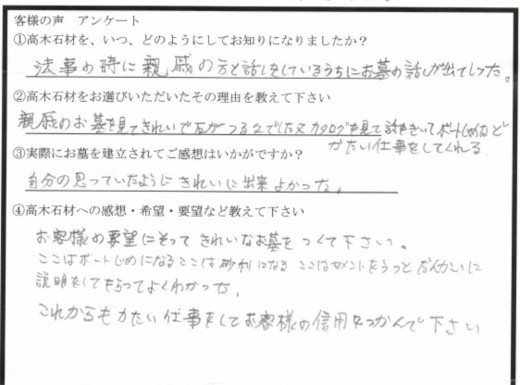 客様の声　アンケート
①高木石材を、いつ、どのようにしてお知りになりましたか？
法事の時に親戚の方と話しをしているうちにお墓の話しが出てしった。
②高木石材をお選びいただいたその理由を教えて下さい
親戚のお墓を見てきれいで石がつるつるでした又カタログを見て話をきいてボートじめなど
かたい仕事をしてくれる
③実際にお墓を建立されてご感想はいかがですか？
自分の思っていたようにきれいに出来よかった。
④高木石材への感想・希望・要望など教えて下さい
お客様の要望にそってきれいなお墓をつくて下さい。
ここはボートじめになるここは砂利になるここはセメントをうつと
説明をしてもらってよくわかった。
これからもかたい仕事をしてお客様の信用をつかんで下さい